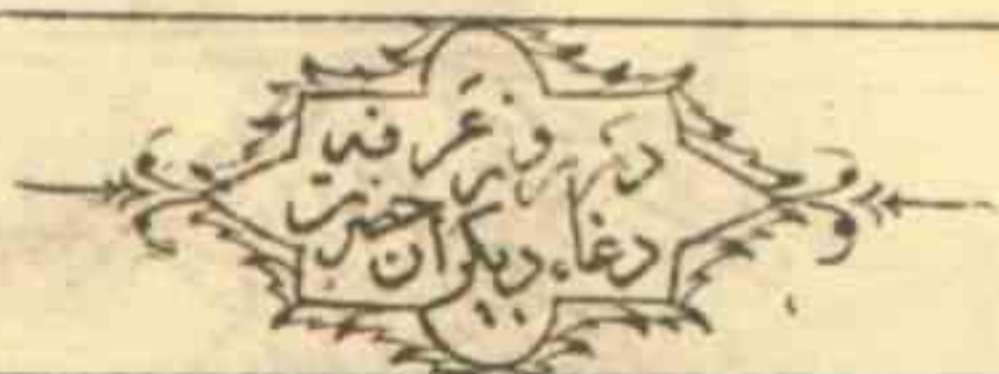 دعاء دیگر آن حضرت
در روز عرفه